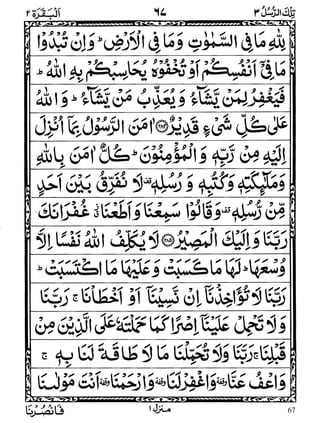 تِلْكَ الرُّسُلُ ٣ ٦٧ اَلْبَقَرَة ٢
لِلّٰهِ مَا فِي السَّمٰوٰتِ وَمَا فِي الْاَرْضِ ؕ وَاِنْ تُبْدُوْا
مَا فِيْۤ اَنْفُسِكُمْ اَوْ تُخْفُوْهُ يُحَاسِبْكُمْ بِهِ اللّٰهُ ؕ
فَيَغْفِرُ لِمَنْ يَّشَآءُ وَيُعَذِّبُ مَنْ يَّشَآءُ ؕ وَاللّٰهُ
عَلٰى كُلِّ شَيْءٍ قَدِيْرٌ ﴿٢٨٤﴾ اٰمَنَ الرَّسُوْلُ بِمَاۤ اُنْزِلَ
اِلَيْهِ مِنْ رَّبِّهٖ وَالْمُؤْمِنُوْنَ ؕ كُلٌّ اٰمَنَ بِاللّٰهِ
وَمَلٰٓئِكَتِهٖ وَكُتُبِهٖ وَرُسُلِهٖ قف لَا نُفَرِّقُ بَيْنَ اَحَدٍ
مِّنْ رُّسُلِهٖ قف وَقَالُوْا سَمِعْنَا وَاَطَعْنَا غُفْرَانَكَ
رَبَّنَا وَاِلَيْكَ الْمَصِيْرُ ﴿٢٨٥﴾ لَا يُكَلِّفُ اللّٰهُ نَفْسًا اِلَّا
وُسْعَهَا ؕ لَهَا مَا كَسَبَتْ وَعَلَيْهَا مَا اكْتَسَبَتْ ؕ
رَبَّنَا لَا تُؤَاخِذْنَاۤ اِنْ نَّسِيْنَاۤ اَوْ اَخْطَاْنَا ۚ رَبَّنَا
وَلَا تَحْمِلْ عَلَيْنَاۤ اِصْرًا كَمَا حَمَلْتَهٗ عَلَى الَّذِيْنَ مِنْ
قَبْلِنَا ۚ رَبَّنَا وَلَا تُحَمِّلْنَا مَا لَا طَاقَةَ لَنَا بِهٖ ۚ
وَاعْفُ عَنَّا وقفة وَاغْفِرْ لَنَا وقفة وَارْحَمْنَا وقفة اَنْتَ مَوْلٰىنَا
فَانْصُرْنَا منزل ١ 67